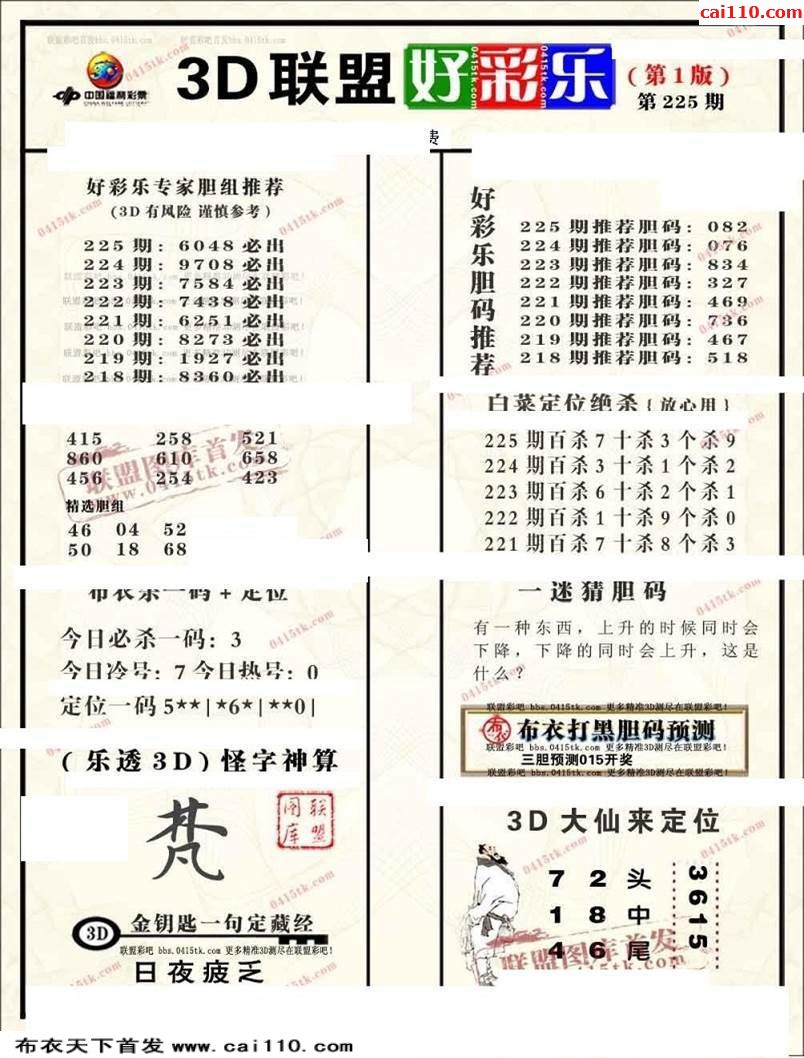 cai110.com
联盟彩吧首发bbs.0415tk.com 联盟彩吧首发bbs.0415tk.com
中国福利彩票
CHINA WELFARE LOTTERY
3D联盟好彩乐
(第1版)
第225期
费
好彩乐专家胆组推荐
(3D有风险 谨慎参考)
225期:6048必出
224期:9708必出
223期:7584必出
222期:7438必出
221期:6251必出
220期:8273必出
219期:1927必出
218期:8360必出
415 258 521
860 610 658
456 254 423
精选胆组
46 04 52
50 18 68
布衣杀一码+定位
今日必杀一码:3
今日冷号:7 今日热号:0
定位一码5**|*6*|**0|
(乐透3D)怪字神算
梵
联盟图库
3D
金钥匙一句定藏经
联盟彩吧 bbs.0415tk.com 更多精准3D测尽在联盟彩吧!
日夜疲乏
好彩乐胆码推荐
225期推荐胆码:082
224期推荐胆码:076
223期推荐胆码:834
222期推荐胆码:327
221期推荐胆码:469
220期推荐胆码:736
219期推荐胆码:467
218期推荐胆码:518
白菜定位绝杀{放心用}
225期百杀7十杀3个杀9
224期百杀3十杀1个杀2
223期百杀6十杀2个杀1
222期百杀1十杀9个杀0
221期百杀7十杀8个杀3
一迷猜胆码
有一种东西,上升的时候同时会
下降,下降的同时会上升,这是
什么?
联盟彩吧 bbs.0415tk.com 更多精准3D测尽在联盟彩吧!
布衣打黑胆码预测
联盟彩吧 bbs.0415tk.com 更多精准3D测尽在联盟彩吧!
三胆预测015开奖
联盟彩吧 bbs.0415tk.com 更多精准3D测尽在联盟彩吧!
3D大仙来定位
7 2 头
1 8 中
4 6 尾
3615
联盟图库首发
www.0415tk.com
布衣天下首发 www.cai110.com